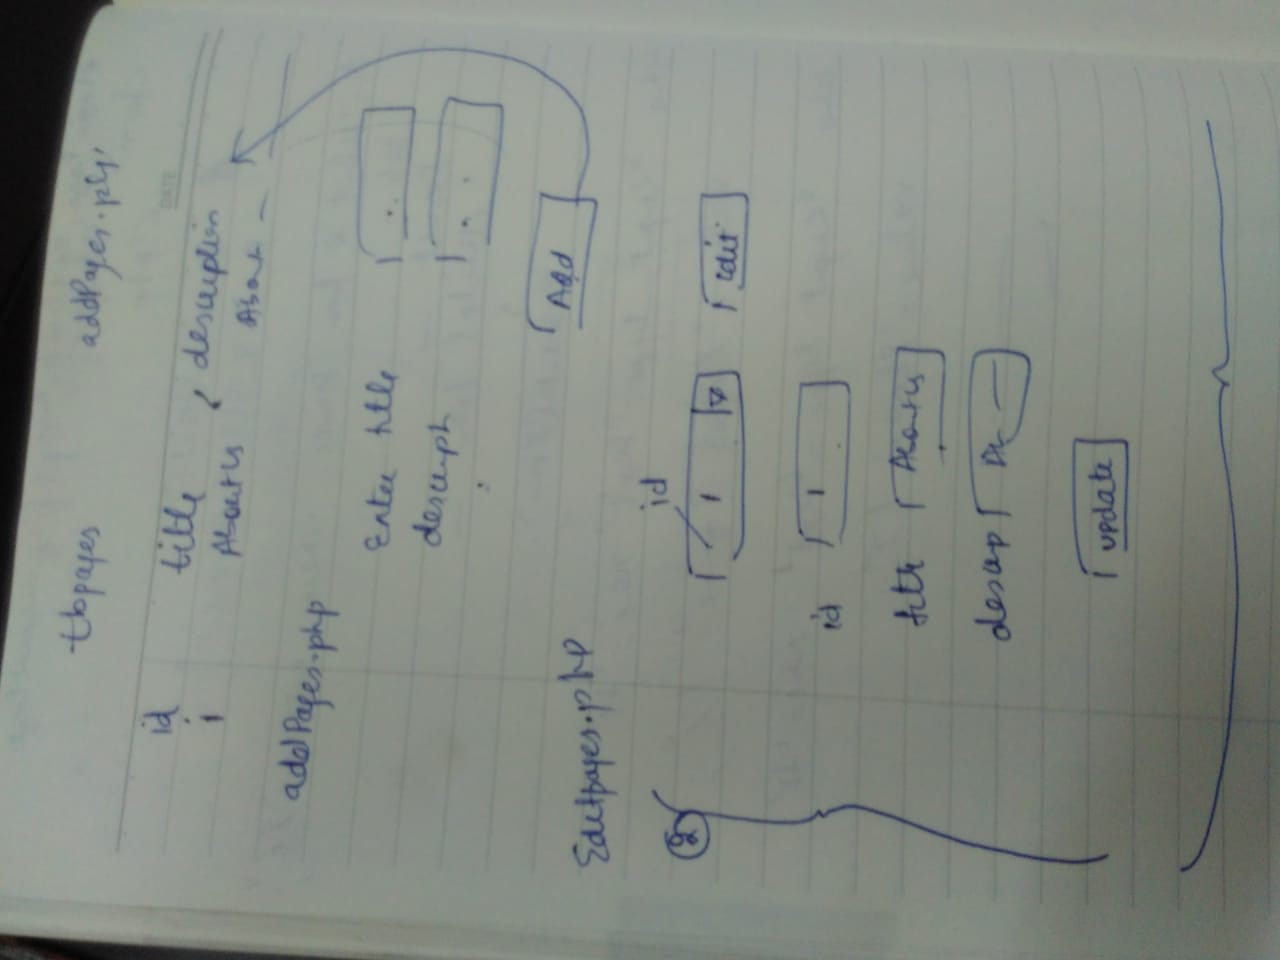 tbpages addPages.php
DATE
id title , description
1 About us About —
addPages.php
Enter title
descript
Add
Editpages.php
id
2 1 Edit
id 1
title About us
descrip A
update